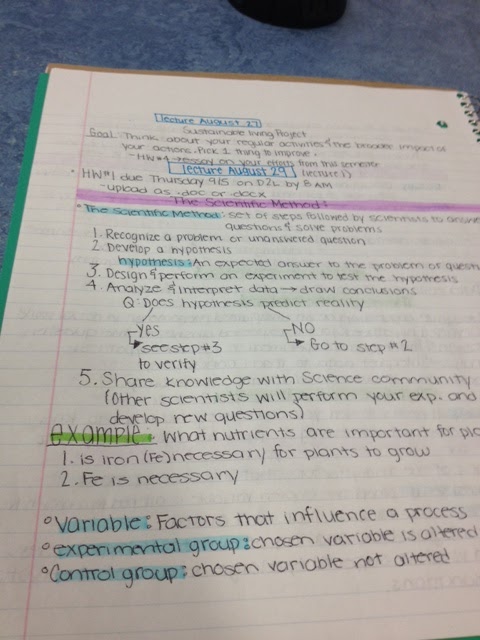 lecture August 27
Sustainable living Project
Goal: Think about your regular activities & the broader impact of
your actions. Pick 1 thing to improve.
- HW #4 → report on your efforts from this semester
lecture August 29 (lecture 1)
• HW#1 due Thursday 9/5 on D2L by 8 AM
-upload as .doc or .docx
The Scientific Method:
• The Scientific Method: set of steps followed by scientists to
questions & solve problems
1. Recognize a problem or unanswered question
2. Develop a hypothesis
hypothesis: An expected answer to the problem or quest
3. Design & perform an experiment to test the hypothesis
4. Analyze & interpret data → draw conclusions
Q: Does hypothesis predict reality
Yes NO
→ see step #3 → Go to step #2
to verify
5. Share knowledge with Science community
(Other scientists will perform your exp. and
develop new questions)
example: What nutrients are important for pla
1. is iron (Fe) necessary for plants to grow
2. Fe is necessary
° Variable: Factors that influence a process
° experimental group: chosen variable is altered
° Control group: chosen variable not altered